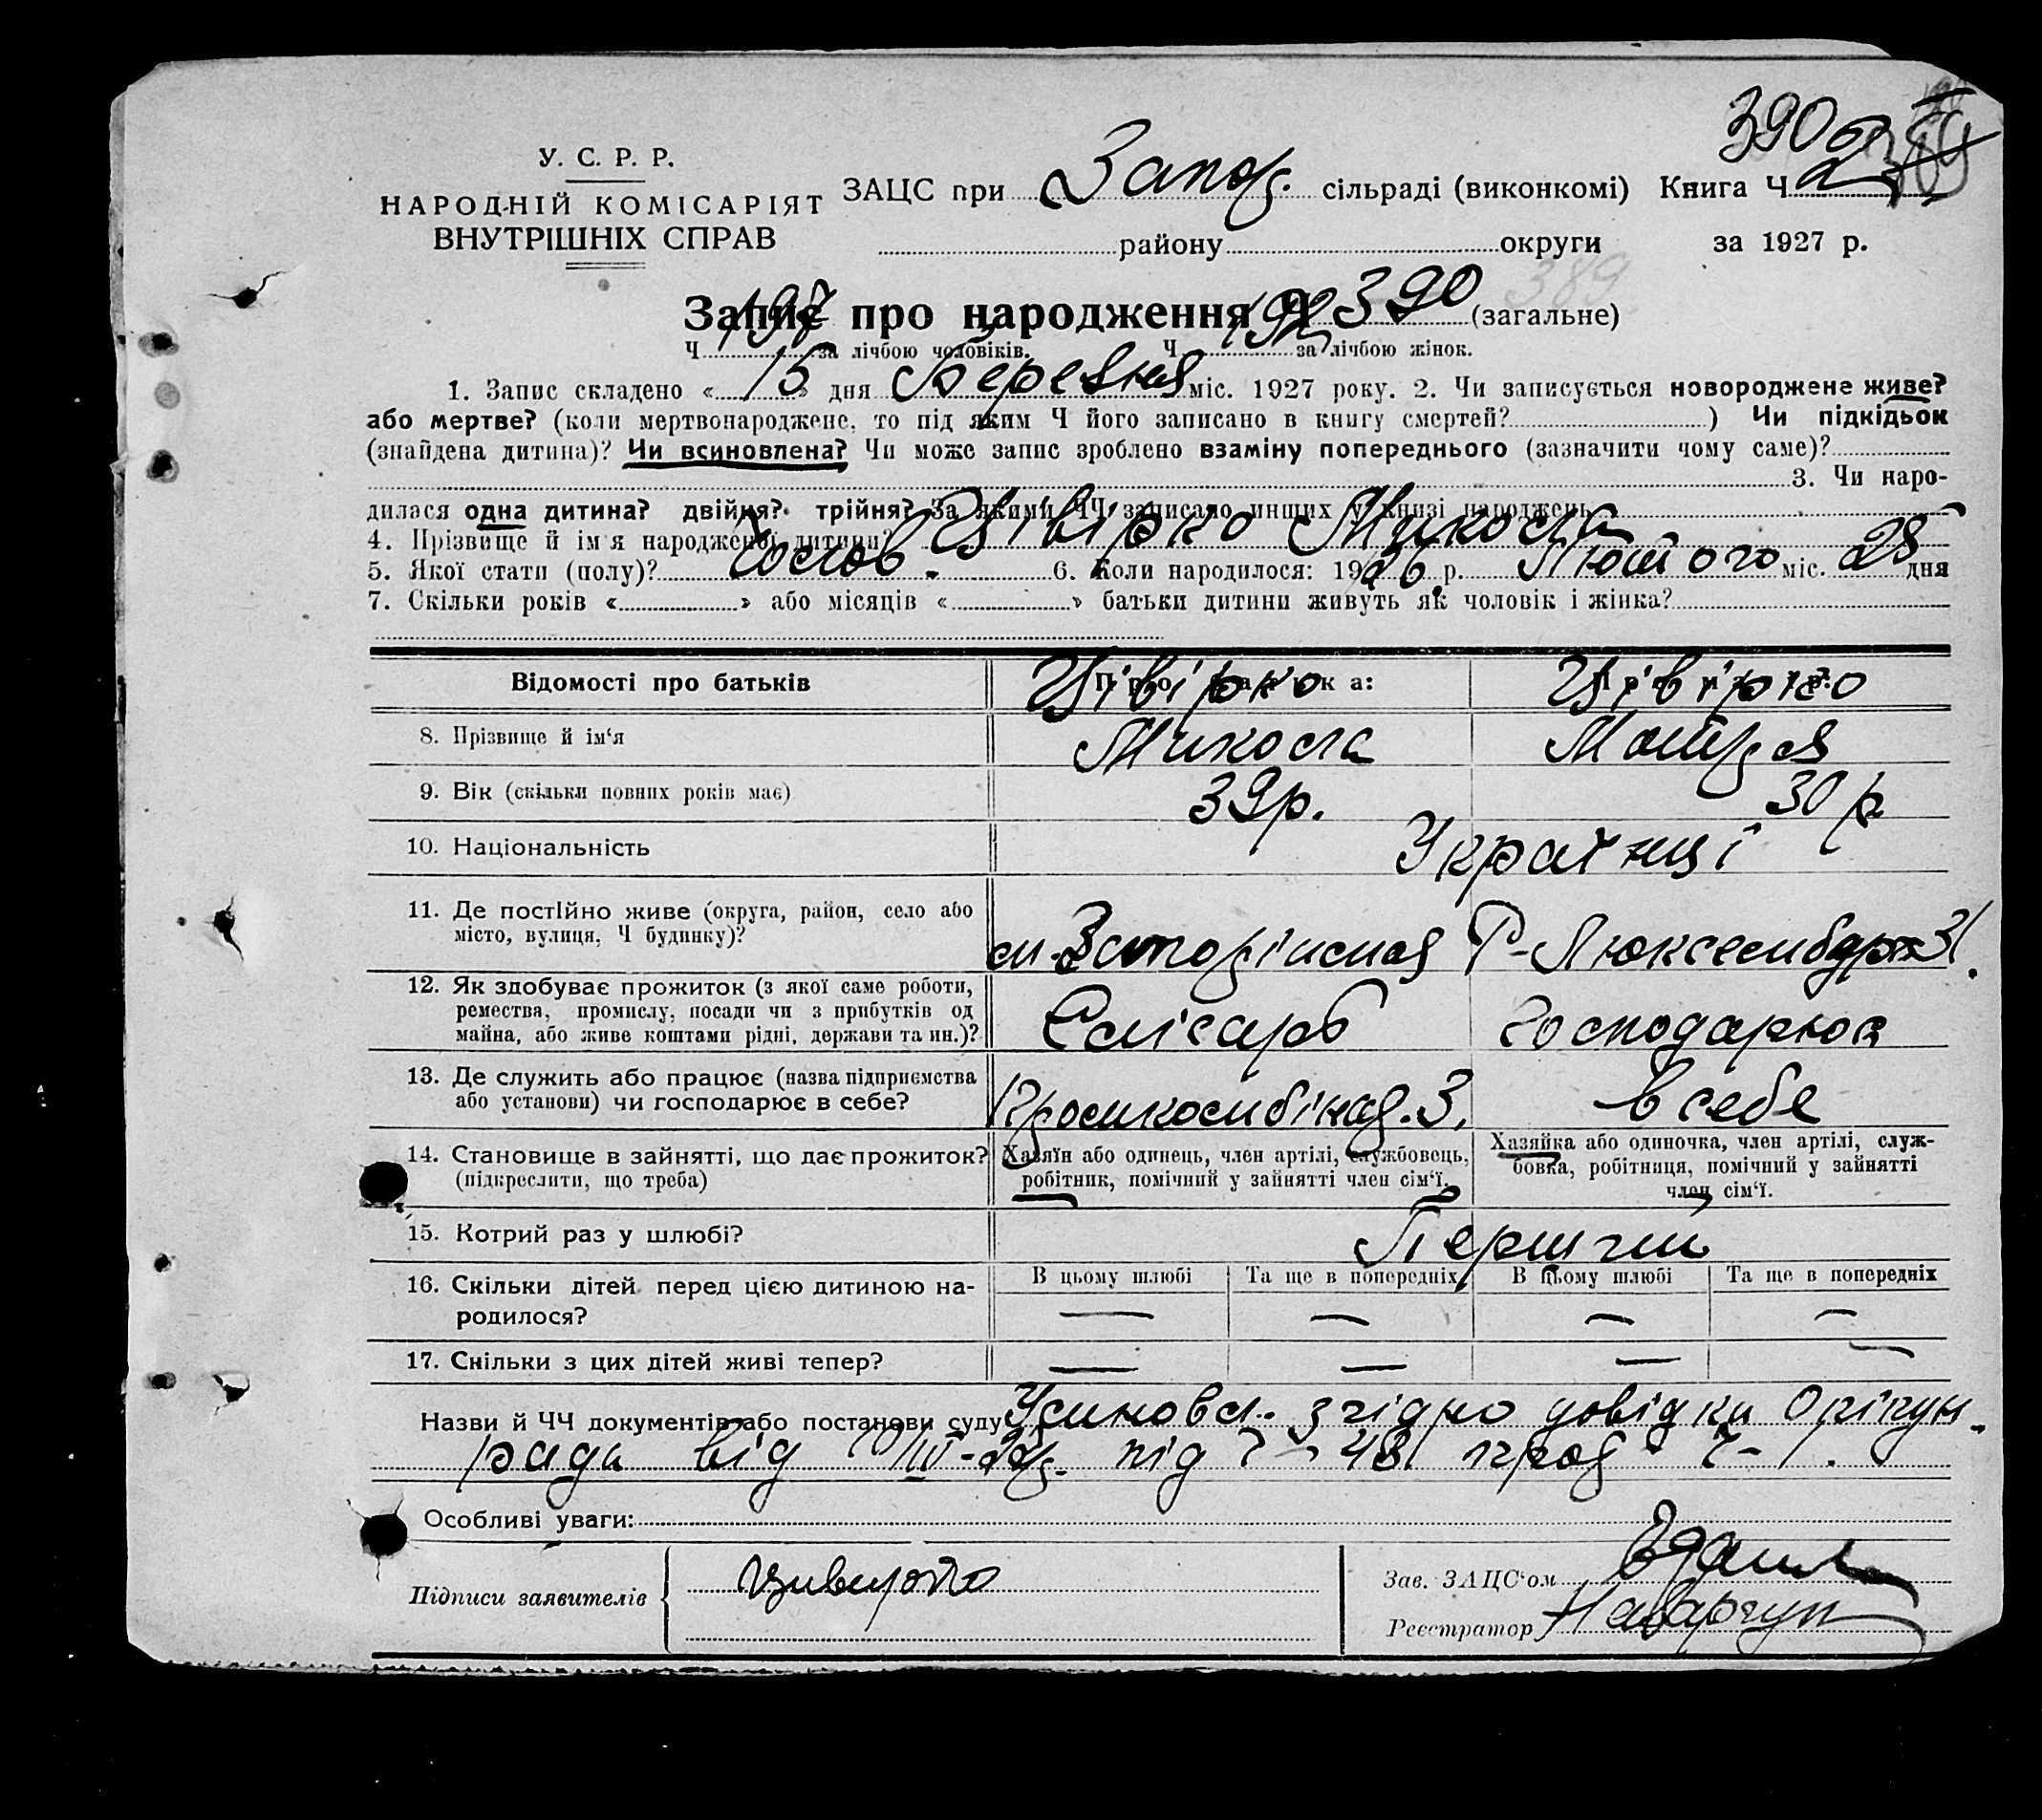 390
У. С. Р. Р.
НАРОДНІЙ КОМІСАРІЯТ
ВНУТРІШНІХ СПРАВ
ЗАЦС при Запор. сільраді (виконкомі) Книга Ч 2
району округи за 1927 р.
389
Запис про народження Ч 390 (загальне)
Ч 197 за лічбою чоловіків. Ч 192 за лічбою жінок.
1. Запис складено « 15 » дня Березня міс. 1927 року. 2. Чи записується новороджене живе?
або мертве? (коли мертвонароджене, то під яким Ч його записано в книгу смертей? ) Чи підкідьок
(знайдена дитина)? Чи всиновлена? Чи може запис зроблено взаміну попереднього (зазначити чому саме)?
3. Чи наро-
дилася одна дитина? двійня? трійня? За якими ЧЧ записано инших у книзі народжень
4. Прізвище й ім'я народженої дитини? Цівірко Микола
5. Якої стати (полу)? Чолов. 6. Коли народилося: 1926 р. Лютого міс. 28 дня
7. Скільки років « » або місяців « » батьки дитини живуть як чоловік і жінка?
Відомості про батьків Про батька: Про матір:
Цівірко Цівірко
8. Прізвище й ім'я Микола Мотря
9. Вік (скільки повних років має) 39 р. 30 р.
10. Національність Українці
11. Де постійно живе (округа, район, село або
місто, вулиця, Ч будинку)? м. Запоріжжя Р-Люксембург 31.
12. Як здобуває прожиток (з якої саме роботи,
ремества, промислу, посади чи з прибутків од
майна, або живе коштами рідні, держави та ин.)? Слюсарь Господарює
13. Де служить або працює (назва підприємства
або установи) чи господарює в себе? в себе
14. Становище в зайнятті, що дає прожиток?
(підкреслити, що треба)
Хазяїн або одинець, член артілі, службовець,
робітник, помічний у зайнятті член сім'ї.
Хазяйка або одиночка, член артілі, служ-
бовка, робітниця, помічний у зайнятті
член сім'ї.
15. Котрий раз у шлюбі? Перший
16. Скільки дітей перед цією дитиною на-
родилося?
В цьому шлюбі Та ще в попередніх В цьому шлюбі Та ще в попередніх
— — — —
17. Скільки з цих дітей живі тепер? — — — —
Назви й ЧЧ документів або постанови суду Усиновл. згідно довідки
ради від під Ч
Особливі уваги:
Підписи заявителів Цивирко
Зав. ЗАЦС'ом
Реєстратор